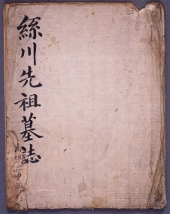 絲川先祖墓誌